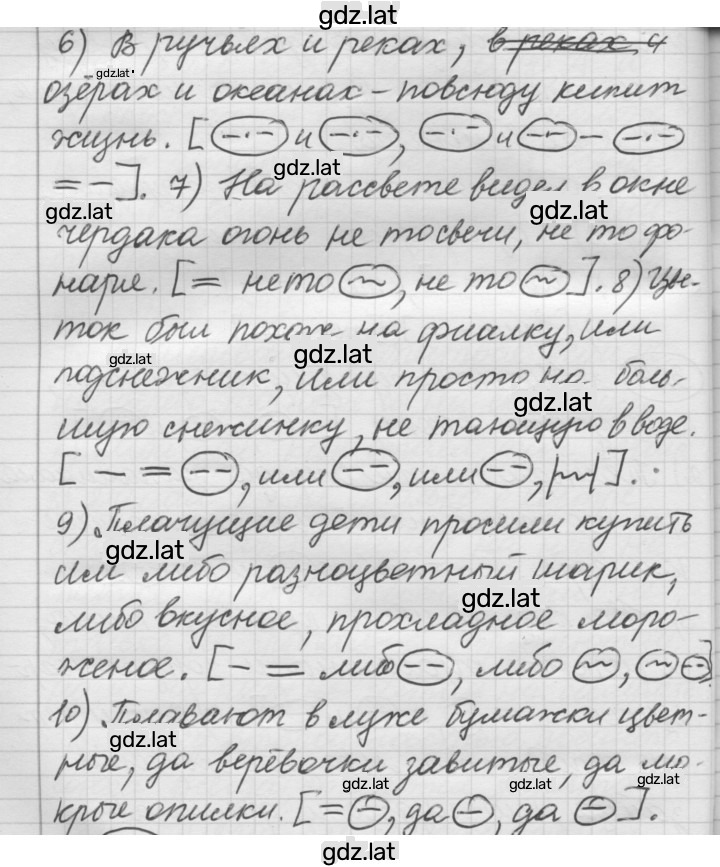 gdz.lat
6) В ручьях и реках, в реках и
gdz.lat
озёрах и океанах – повсюду кипит
жизнь. [ и , и –
gdz.lat
= – ]. 7) На рассвете виден в окне
gdz.lat gdz.lat
чердака огонь не то свечи, не то фо-
наря. [ = не то , не то ]. 8) Цве-
ток был похож на фиалку, или
gdz.lat gdz.lat
подснежник, или просто на боль-
gdz.lat
шую снежинку, не тающую в воде.
[ – = , или , или , ].
9) Плачущие дети просили купить
gdz.lat
им либо разноцветный шарик,
gdz.lat
либо вкусное, прохладное моро-
женое. [ – = либо , либо , ].
10) Плавают в луже бумажки цвет-
gdz.lat
ные, да верёвочки завитые, да мо-
gdz.lat gdz.lat gdz.lat
крые опилки. [ = , да , да ].
gdz.lat